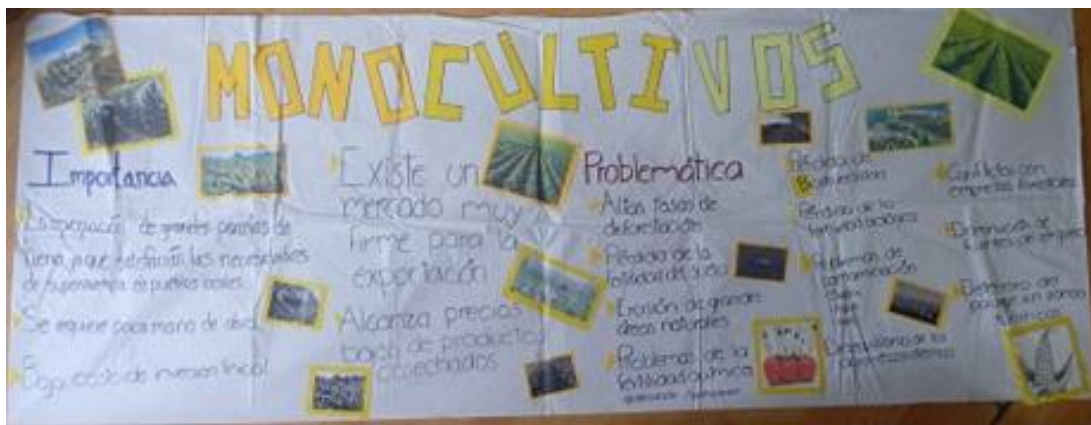 MONOCULTIVOS
Importancia
de grandes
tierra, que las necesidades
de supervivencia de pueblos
Se requiere poca mano de obra
Bajo costo de inversión inicial
Existe un
mercado muy
firme para la
exportación
Alcanza precios
bajos de productos
cosechados
Problemática
Altas tasas de
deforestación
Pérdida de la
fertilidad del suelo
Erosión de grandes
áreas naturales
Problemas de la
fertilidad química
Pérdida de
Biodiversidad
Pérdida de la
Problemas de
contaminación
Desequilibrio de los
Conflictos con
empresas forestales
Disminución de
fuentes de empleo
Deterioro del
paisaje en zonas
turísticas